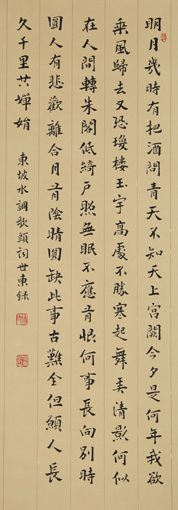 明月幾時有把酒問青天不知天上宮闕今夕是何年我欲
乘風歸去又恐瓊樓玉宇高處不勝寒起舞弄清影何似
在人間轉朱閣低綺戶照無眠不應有恨何事長向別時
圓人有悲歡離合月有陰晴圓缺此事古難全但願人長
久千里共嬋娟
東坡水調歌頭詞世東錄